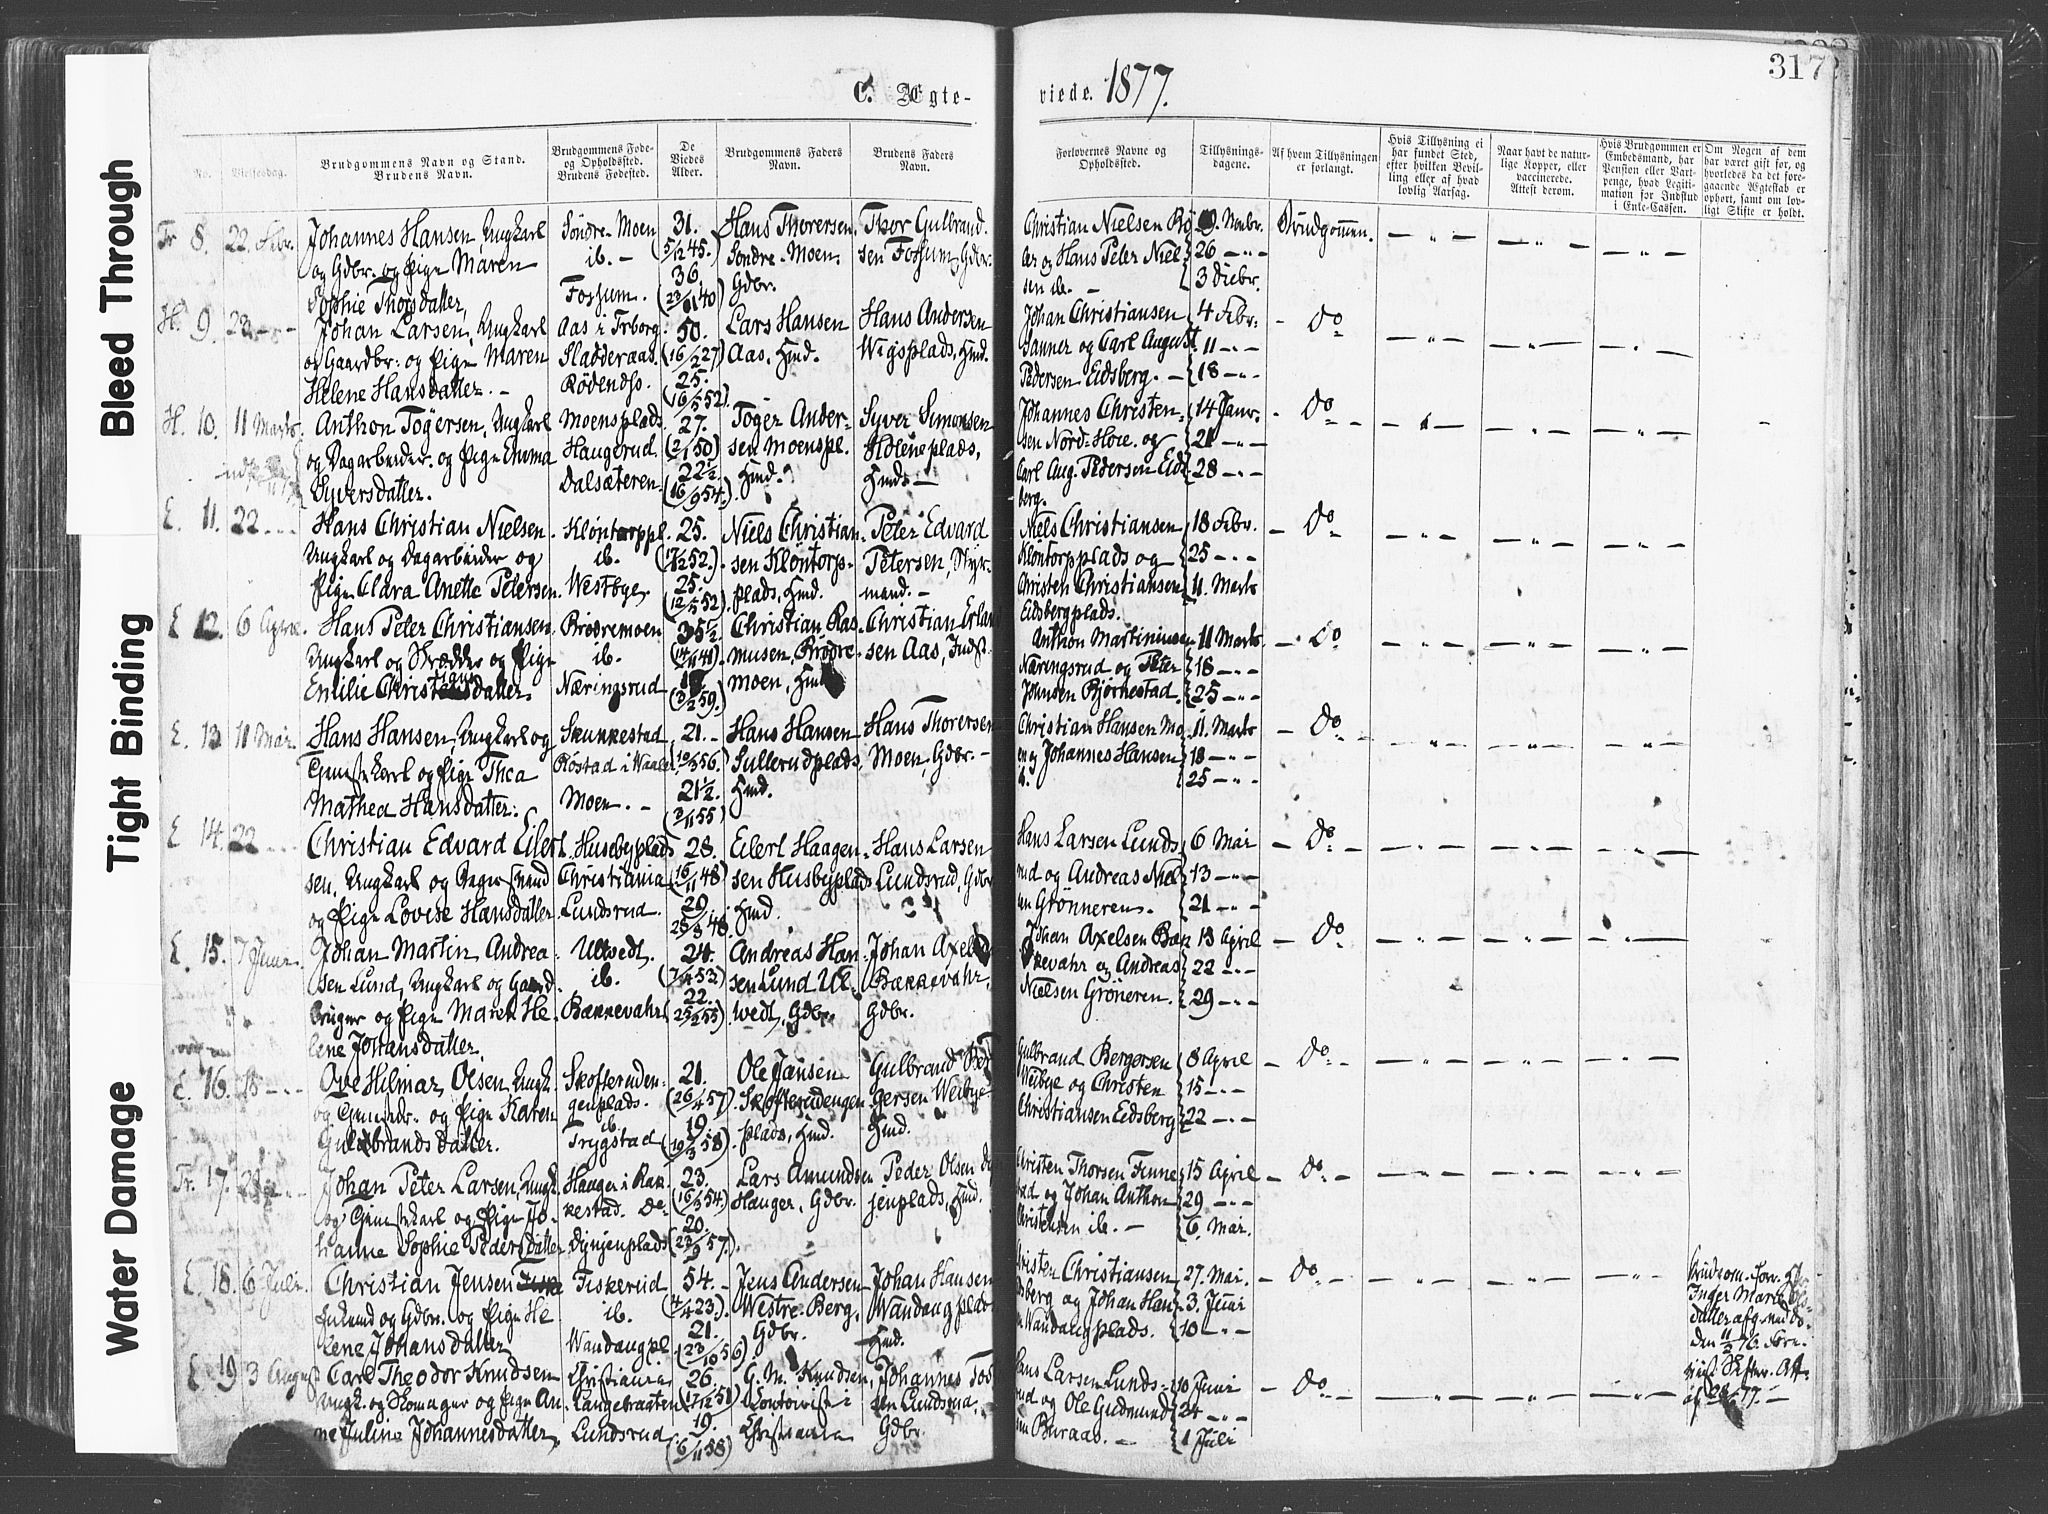 Bleed Through
Tight Binding
Water Damage
C. Ægte-
viede. 1877.
317
No.
Vielsesdag.
Brudgommens Navn og Stand.
Brudens Navn.
Brudgommens Føde-
og Opholdssted.
Brudens Fødested.
De
Viedes
Alder.
Brudgommens Faders
Navn.
Brudens Faders
Navn.
Forlovernes Navne og
Opholdssted.
Tillysnings-
dagene.
Af hvem Tillysningen
er forlangt.
Hvis Tillysning ei
har fundet Sted,
efter hvilken Bevil-
ling eller af hvad
lovlig Aarsag.
Naar havt de natur-
lige Kopper, eller
vaccinerede.
Attest derom.
Hvis Brudgommen er
Embedsmand, har han
Pension eller Vart-
penge, hvad Legiti-
mation for Indskud
i Enke-Cassen.
Om Nogen af dem
har været gift før, og
hvorledes da det fore-
gaaende Ægteskab er
ophørt, samt om lov-
ligt Skifte er holdt.
Fr 8. 22. Febr.
Johannes Hansen, Ungkarl
og Gdbr. og Pige Maren
Sophie Thorsdatter,
Søndre Moen
ib. -
Fossum.
31.
(5/12 45.)
36.
(23/11 40)
Hans Thoresen
Søndre Moen
Gdbr.
Thor Gulbrand
sen Fossum, Gdbr.
Christian Nielsen
og Hans Peter Niel
sen ib. -
Novbr.
26 - " -
3 Decbr.
Brudgommen.
H. 9.
Johan Larsen, Ungkarl
og Gaardbr: og Pige Maren
Helene Hansdatter. -
Aas i Trborg.
Sladderaas.
Rødends.
50.
(16/2 27)
25.
(16/5 52)
Lars Hansen
Aas, Hmd.
Hans Andersen
Wigsplads, Hmd.
Johan Christiansen
Sanner og Carl August
Pedersen Eidsberg. -
4 Febr.
11 - " -
18 - " -
Do
H. 10. 11 Marts
Anthon Tøgersen, Ungkarl
og Dagarbeider. og Pige Emma
Syversdatter.
Moensplads
Haugerud.
Dalsæteren.
27.
(2/1 50)
22½
(16/9 54.)
Tøger Ander-
sen Moenspl.
Hmd.
Syver Simonsen
Holeneplads,
Hmd. -
Johannes Christen-
sen Nord-Hoie. og
Carl Aug. Pedersen Eids
berg.
14 Janr.
21 - " -
28 - " -
Do
E. 11. 22 - - -
Hans Christian Nielsen
Ungkarl og Dagarbeider og
Pige Clara Anette Petersen
Kløntorppl.
ib.
Westbye.
25.
(17/2 52.)
25.
(12/5 52)
Niels Christian-
sen Kløntorps-
plads, Hmd.
Peter Edvard
Petersen, Styr-
mand. -
Niels Christiansen
Kløntorpplads og
Christen Christiansen
Eidsbergplads.
18 Febr.
25 - " -
4. Marts
Do
E 12. 6 April.
Hans Peter Christiansen
Ungkarl og Skrædder og Pige
Emilie Christiansdatter.
Brødremoen
ib.
Næringsrud
35½
(14/11 41)
(3/2 59.)
Christian Ras-
musen, Brødre-
moen, Hmd
Christian Erland
sen Aas, Indst.
Anthon Martiniusen
Næringsrud og Peter
Johnsen Bjørnestad.
11 Marts
18 - " -
25 - " -
Do
E. 13 11 Mai.
Hans Hansen, Ungkarl og
Gaustkarl og Pige Thea
Mathea Hansdatter.
Skukkestad
Røstad i Waaler
Moen. -
21. -
(10/5 56.)
21½.
(3/11 55)
Hans Hansen
Sullerudplads
Hmd.
Hans Thoresen
Moen, Gdbr. -
Christian Hansen Mo
en og Johannes Hansen
11. Marts
18 - " -
25 - " -
Do
E. 14. 22 - - -
Christian Edvard Eilert
sen, Ungkarl og
og Pige Lovise Hansdatter
Husebyplads
Christiania
Lundsrud.
28.
(16/11 48)
29.
28/3 48.
Eilert Haagen-
sen Husbyplads
Hmd.
Hans Larsen
Lundsrud, Gdbr
Hans Larsen Lunds
rud og Andreas Niel
sen Grønneren.
6 Mai
13 - " -
21 - " -
Do
E. 15. 7 Juni.
Johan Martin Andrea-
sen Lund, Ungkarl og Gaard-
bruger og Pige Maren He-
lene Johansdatter.
Ulwedt.
ib.
Bækkevahr
24.
(7/4 53)
22.
(25/2 55)
Andreas Han
sen Lund Ul
wedt, Gdbr.
Johan Axelsen
Bækkevahr,
Gdbr.
Johan Axelsen Bæk
kevahr og Andreas
Nielsen Grøneren.
13 April
22 - " -
29 - " -
Do
E. 16.
Ove Hilmar Olsen, Ungk.
og Pige Karen
Gulbrandsdatter.
Skofteruden-
genplads.
ib.
Trygstad
21.
(26/4 57)
19.
(19/3 58)
Ole Jansen
Skøfterudengen
plads, Hmd.
Gulbrand Ber
gersen Weibye
Hmd.
Gulbrand Bergersen
Weibye og Christen
Christiansen Eidsberg
8 April
15 - " -
22 - " -
Do
Fr. 17.
Johan Peter Larsen, Ungk.
og Gaustkarl og Pige Jo-
hanne Sophie Pedersdatter
Hauger i Rak
kestad. Do
Dynjenplads
23.
(16/3 54.)
20.
(23/9 57).
Lars Amundsen
Hauger, Gdbr.
Peder Olsen Dyn
jenplads, Hmd.
Christen Thorsen Finne
stad og Johan Anthon
Christensen ib. -
15 April
29 - " -
6. Mai.
Do
E. 18. 6 Juli.
Christian Jensen
Enkemd og Gdbr. og Pige He
lene Johansdatter
Fiskerud
ib.
Wandaugpl.
54. -
(4/4 23.)
21.
(23/10 56)
Jens Andersen
Westre Berg,
Gdbr.
Johan Hansen
Wandaugplads
Hmd.
Christen Christiansen
Eidsberg og Johan Han-
sen Wandaugplads.
27. Mai.
3. Juni
10 - " -
Do
Brudgom. forr. Hu
Inger Marie Ols-
datter afg. ved Dø-
den 11/2 76.
Skifter. Att.
af 28/6 77. -
E. 19 3 August
Carl Theodor Knudsen
Ungk. og Skomager og Pige An-
ne Juline Johannesdatter,
Christiania
Langebraaten
Lundsrud
26.
(17/12 51)
19.
(6/11 58)
G. M. Knudsen,
Kontorist i
Christiania
Johannes Tos
sen Lundsrud,
Gdbr.
Hans Larsen Lunds-
rud og Ole Gudmund
sen Buraas. -
10 Juni
24 - " -
1 Juli
Do